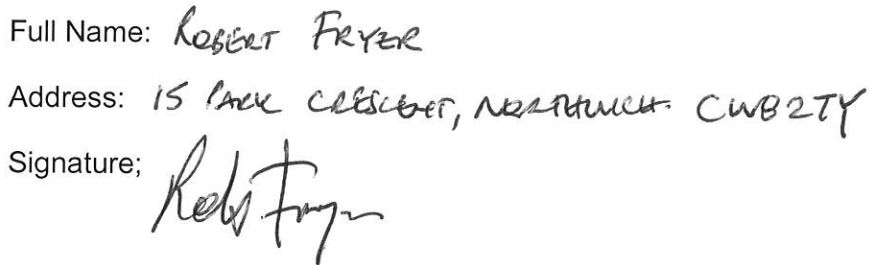 Full Name: ROBERT FRYER
Address: 15 PARK CRESCENT, NORTHWICH. CW8 2TY
Signature; Robt Fryer